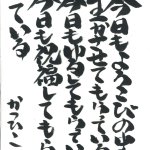 今日もよろこびの中
生かさせてもらっている
今日もゆるしてもらい
今日も祝福してもら
ている
かつひこ